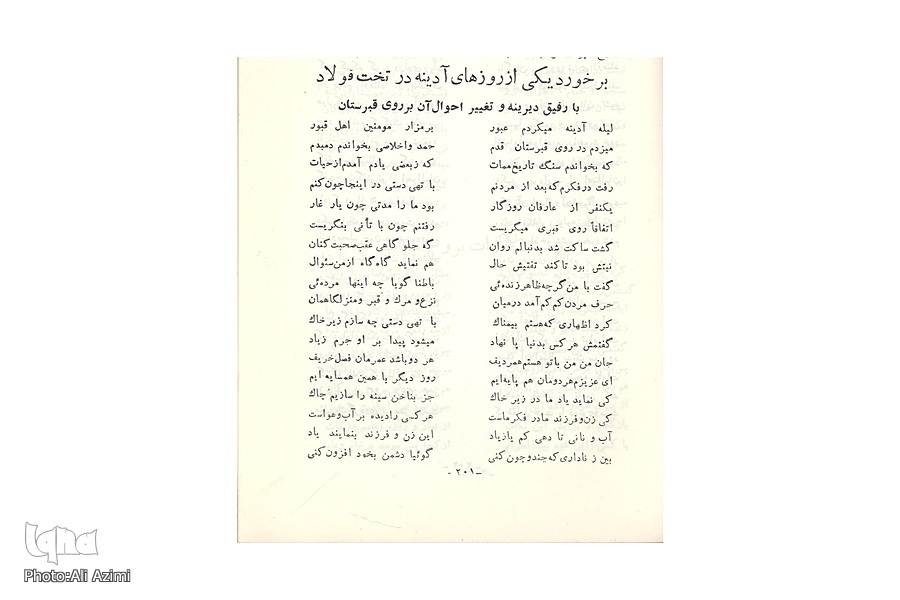 برخورد یکی از روزهای آدینه در تخت فولاد
با رفیق دیرینه و تغییر احوال آن بر روی قبرستان
لیله آدینه میکردم عبور برمزار مومنین اهل قبور
میزدم در روی قبرستان قدم حمد واخلاصی بخواندم دمبدم
که بخواندم سنگ تاریخ ممات که زبعضی یادم آمدم از حیات
رفت در فکرم که بعد از مردنم با تهی دستی در اینجا چون کنم
یکنفر از عارفان روزگار بود ما را مدتی چون یار غار
اتفاقاً روی قبری میگریست رفتنم چون با تأنی بنگریست
گشت ساکت شد بدنبالم روان گه جلو گاهی عقب صحبت کنان
نیتش بود تا کند تفتیش حال هم نماید گاه گاه از من سئوال
گفت با من گرچه ظاهر زنده‌ئی باطنا گویا چه اینها مرده‌ئی
حرف مردن کم کم آمد درمیان نزع و مرك و قبر ومنزلگاهمان
کرد اظهاری که هستم بیمناك با تهی دستی چه سازم زیر خاك
گفتمش هر کس بدنیا پا نهاد میشود پیدا بر او جرم زیاد
جان من من باتو هستم همردیف هر دو باشد عمرمان فصل خریف
ای عزیزم هر دومان هم پایه‌ایم روز دیگر با همین همسایه ایم
کی نماید یاد ما در زیر خاك جز بناخن سینه را سازیم چاك
کی زن و فرزند مادر فکر ماست هر کسی رادیده بر آب وهواست
آب و نانی تا دهی کم یازیاد این زن و فرزند بنمایند یاد
بین ز ناداری که چند و چون کنی گوئیا دشمن بخود افزون کنی
- ۲۰۱ -
iqna
Photo:Ali Azimi